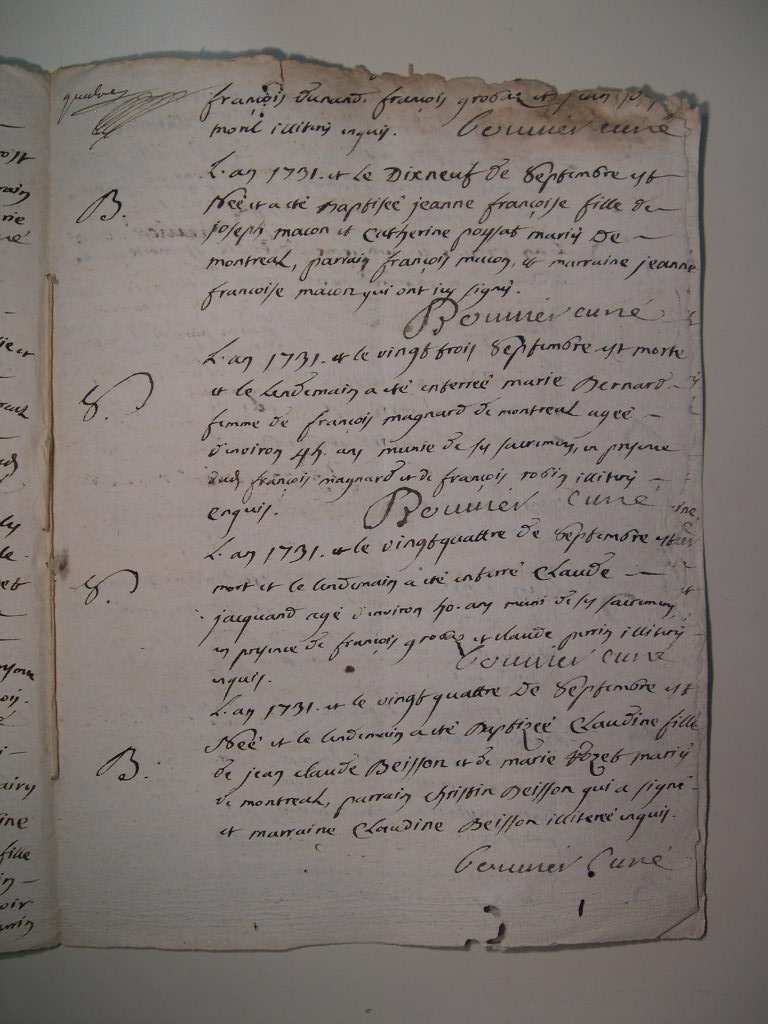 quatre
françois Durand, françois grobas et jean
illiterés enquis. bouvier curé
L'an 1731. et le Dixneuf de Septembre est
B. Née et a eté Baptiseé jeanne françoise fille de
joseph macon et Catherine poysat mariés De
montreal, parrain françois macon, et marraine jeanne
francoise macon qui ont icy signés.
Bouvier curé
L'an 1731. et le vingt trois Septembre est morte
S. et le lendemain a eté enterreé marie Bernard
femme de françois magnard de montreal ageé
d'environ 45. ans munie de ses sacremens, en presence
dud. françois magnard et de françois robin illiterés
enquis. Bouvier curé
L'an 1731. et le vingtquattre de Septembre est
S. mort et le lendemain a eté enterré Claude
jacquand agé d'environ 50. ans muni de ses sacremens
en presence de françois grobas et claude perrin illiterés
enquis. bouvier curé
L'an 1731. et le vingtquattre De Septembre est
Neé et le lendemain a eté Baptizeé Claudine fille
B. de jean claude Beisson et de marie mariés
de montreal, parrain christin Beisson qui a signé
et marraine Claudine Beisson illitereé enquis.
bouvier Curé